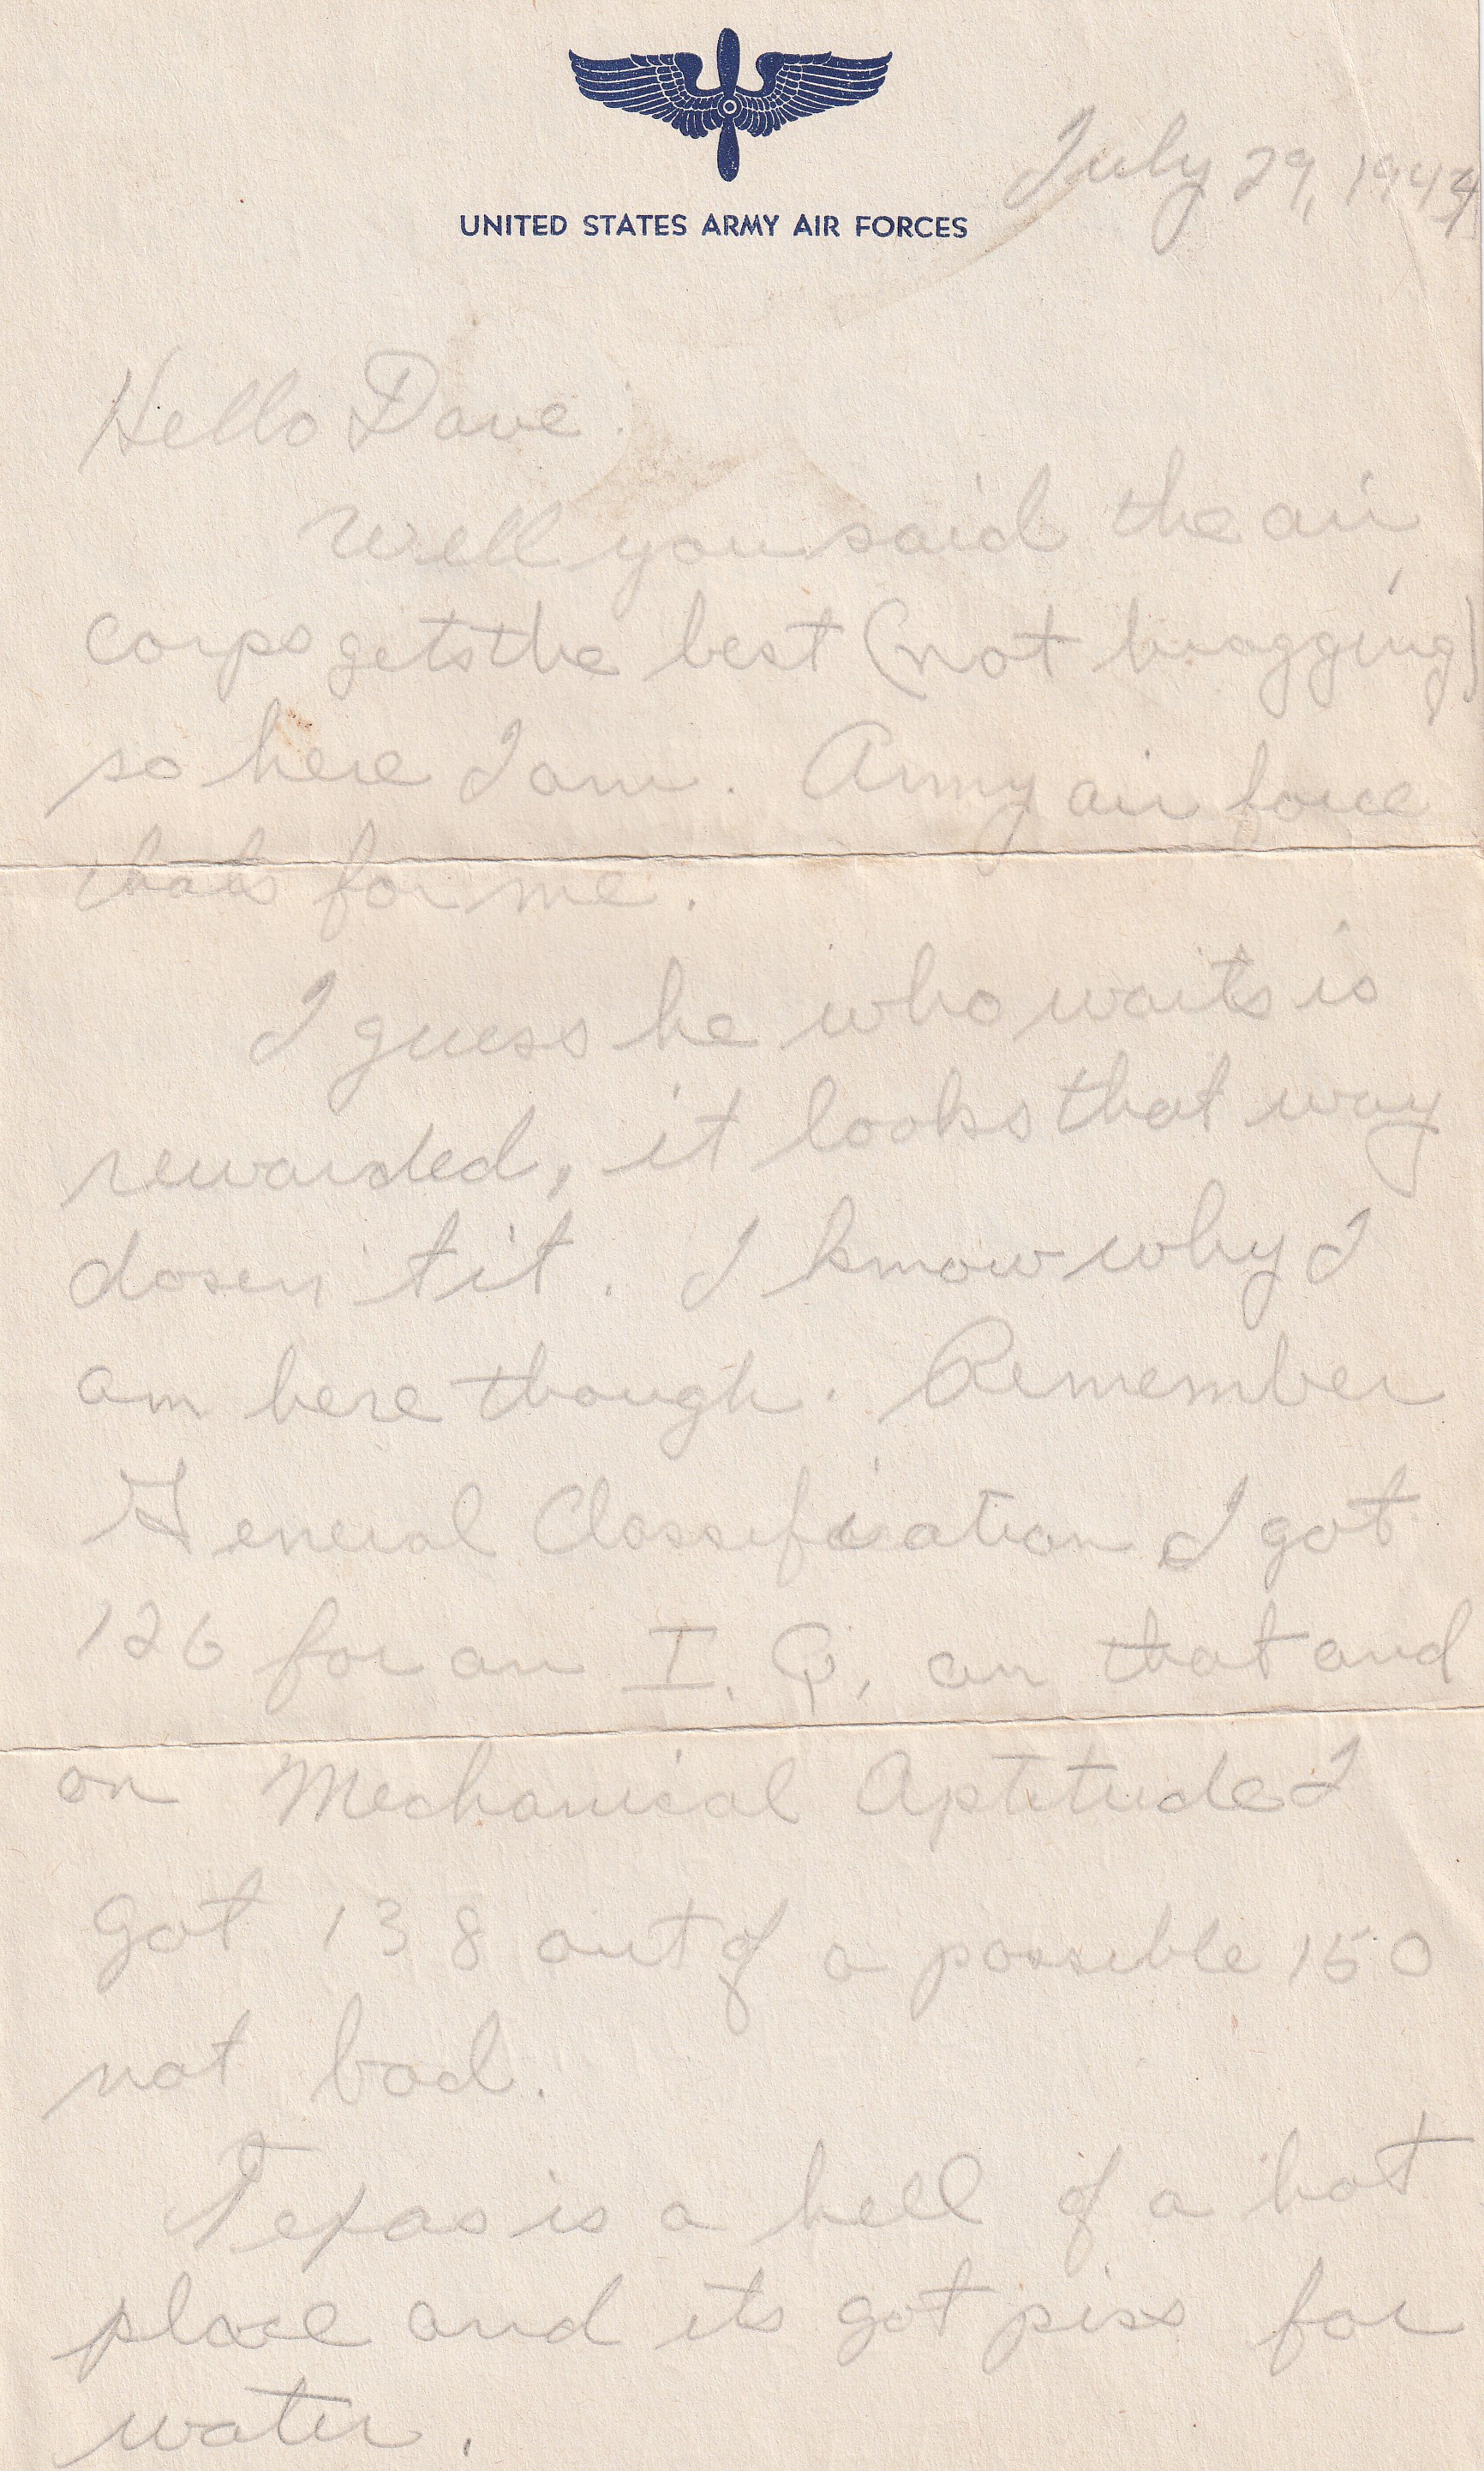 UNITED STATES ARMY AIR FORCES
July 29, 1944
Hello Dave:
Well you said the air
corps gets the best (not bragging)
so here I am. Army air force
thats for me.
I guess he who waits is
rewarded, it looks that way
dosen't it. I know why I
am here though. Remember
General Classification I got
126 for an I. Q. on that and
on Mechanical Aptitude I
got 138 out of a possible 150
not bad.
Texas is a hell of a hot
place and its got piss for
water.